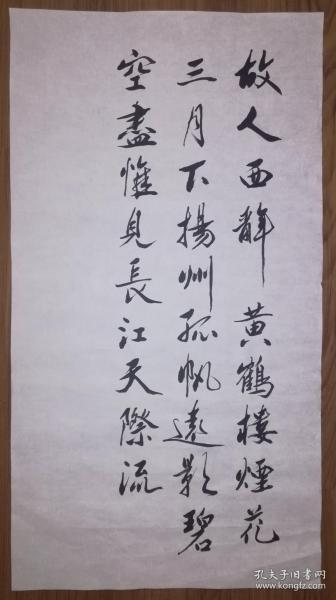 故人西辤黄鶴樓煙花
三月下揚州孤帆遠影碧
空盡惟見長江天際流
孔夫子旧书网
www.kongfz.com